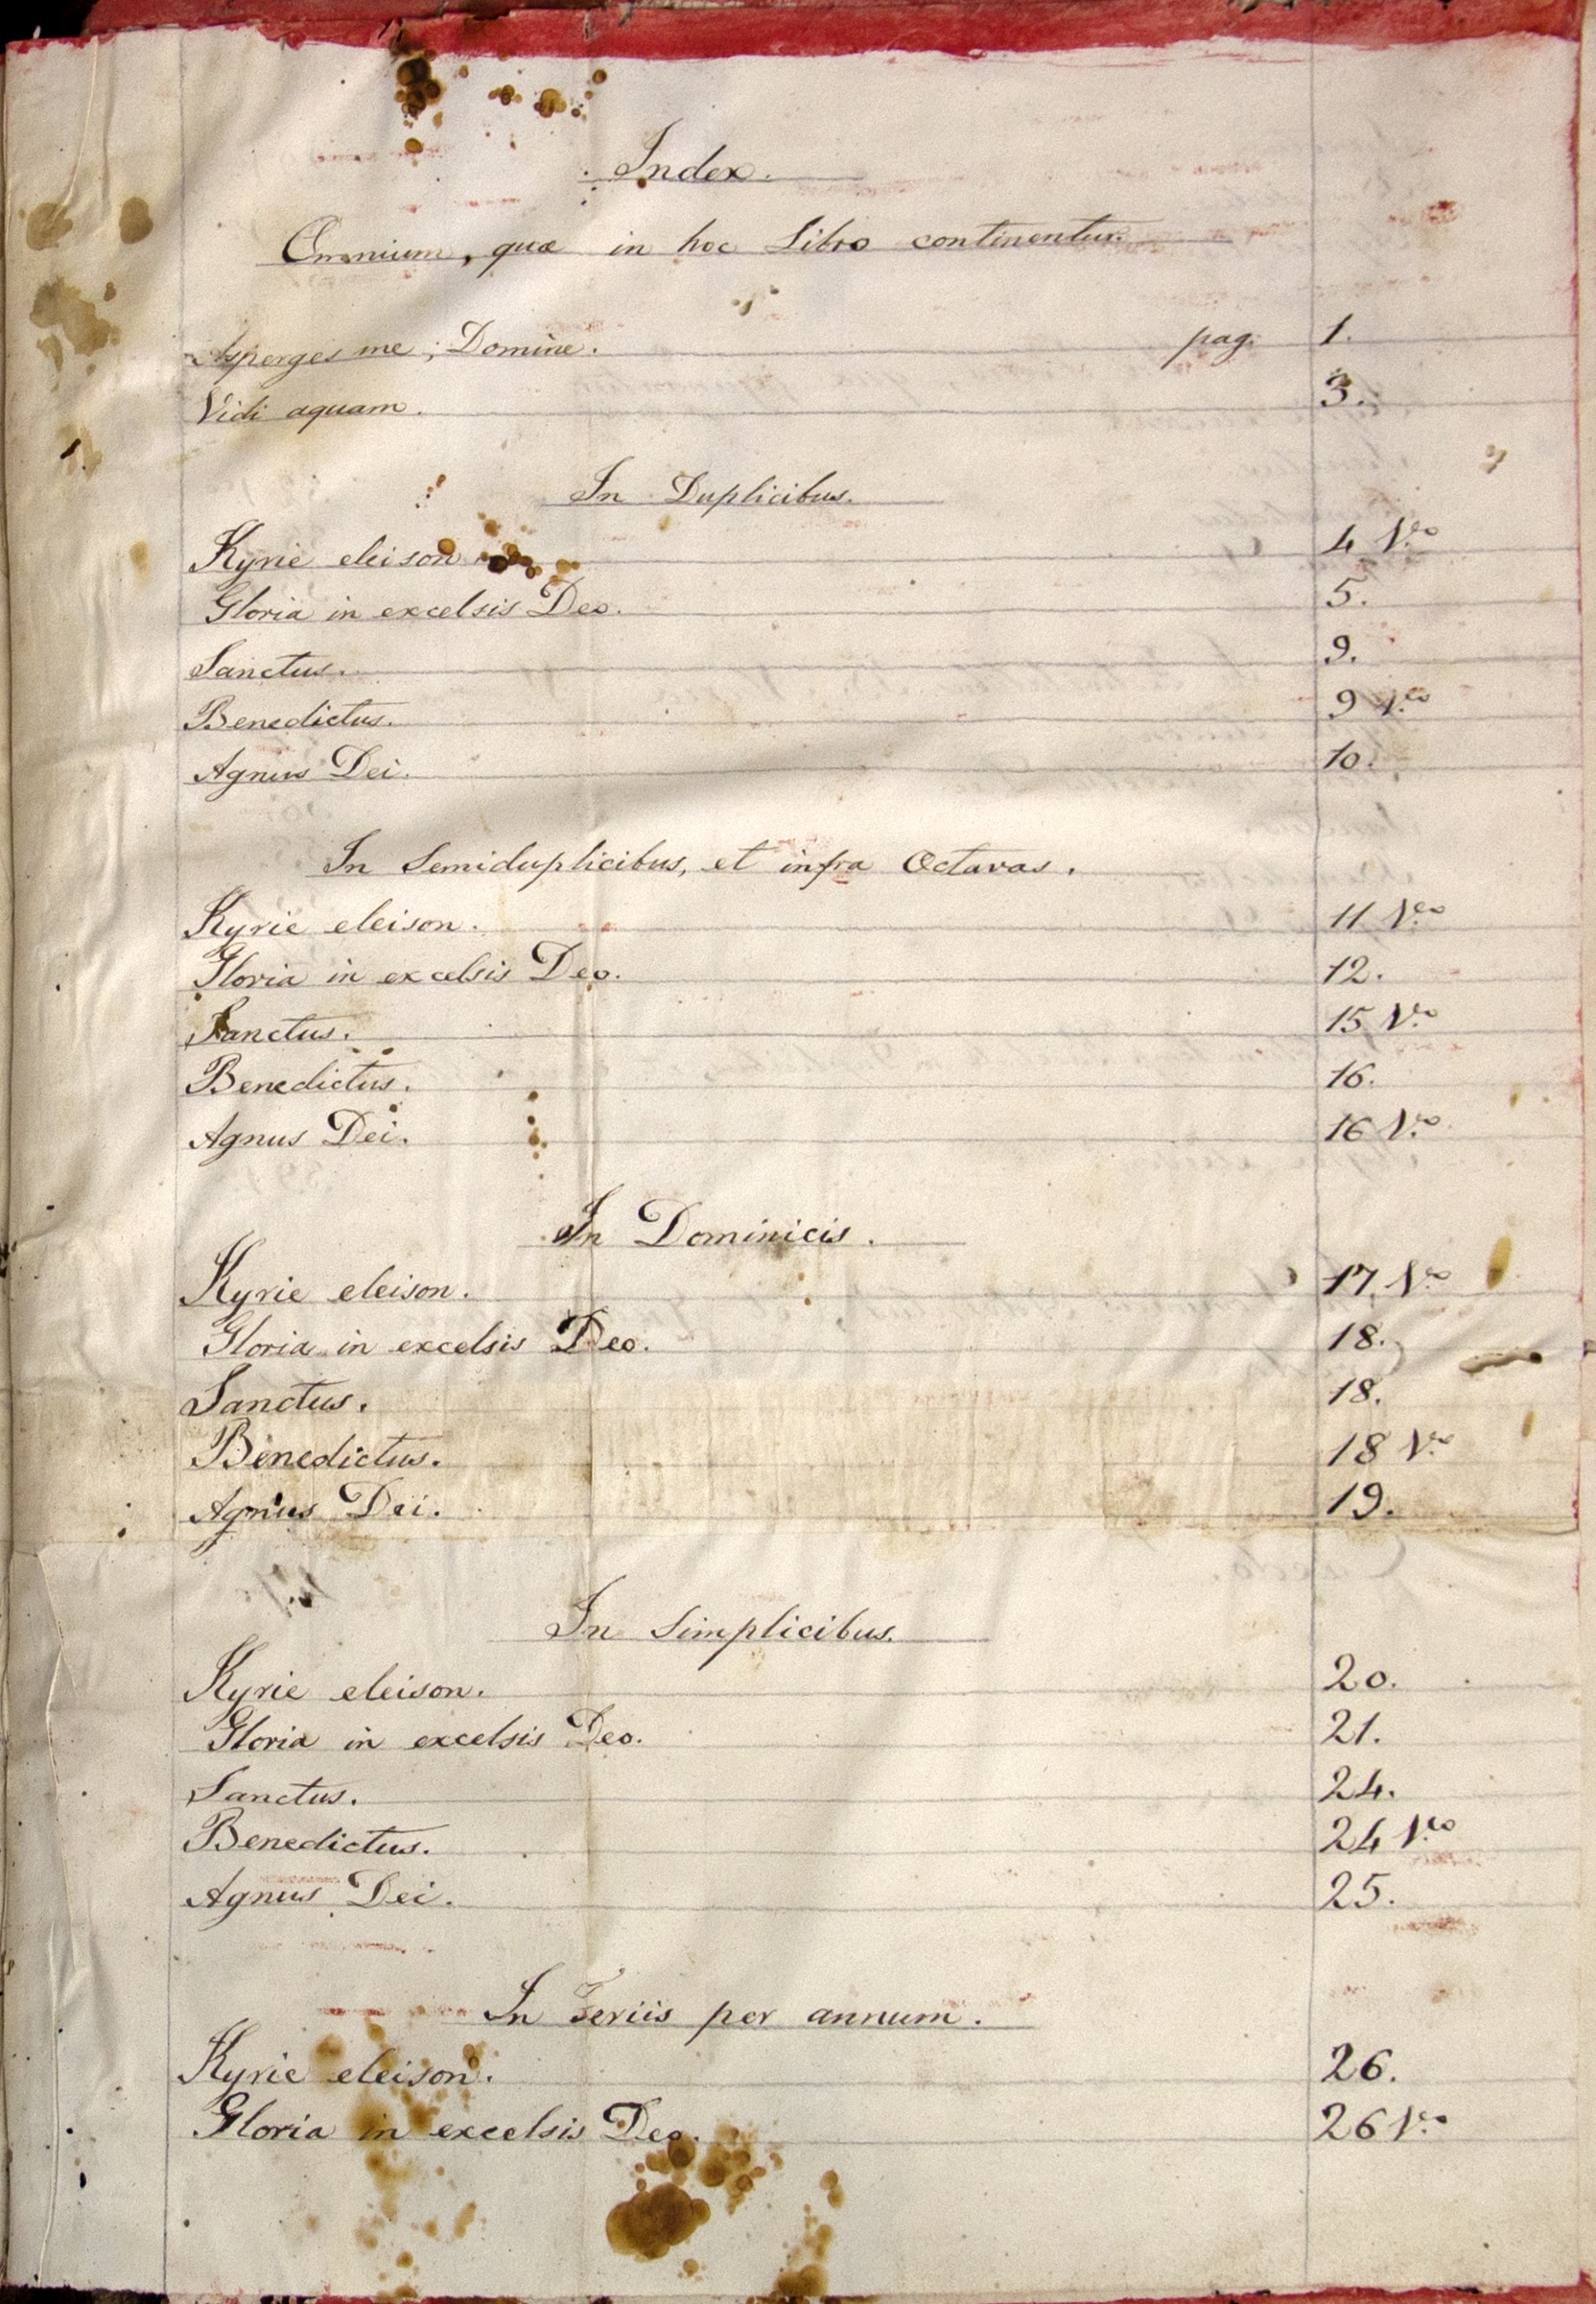 Index.
Omnium, quæ in hoc Libro continentur.
Asperges me, Domine. pag. 1.
Vidi aquam. 3.
In Duplicibus.
Kyrie eleison 4 V.º
Gloria in excelsis Deo. 5.
Sanctus. 9.
Benedictus. 9 V.º
Agnus Dei. 10.
In Semiduplicibus, et infra Octavas.
Kyrie eleison. 11 V.º
Gloria in excelsis Deo. 12.
Sanctus. 15 V.º
Benedictus. 16.
Agnus Dei. 16 V.º
In Dominicis.
Kyrie eleison. 17 V.º
Gloria in excelsis Deo. 18.
Sanctus. 18.
Benedictus. 18 V.º
Agnus Dei. 19.
In Simplicibus.
Kyrie eleison. 20.
Gloria in excelsis Deo. 21.
Sanctus. 24.
Benedictus. 24 V.º
Agnus Dei. 25.
In Feriis per annum.
Kyrie eleison. 26.
Gloria in excelsis Deo. 26 V.º